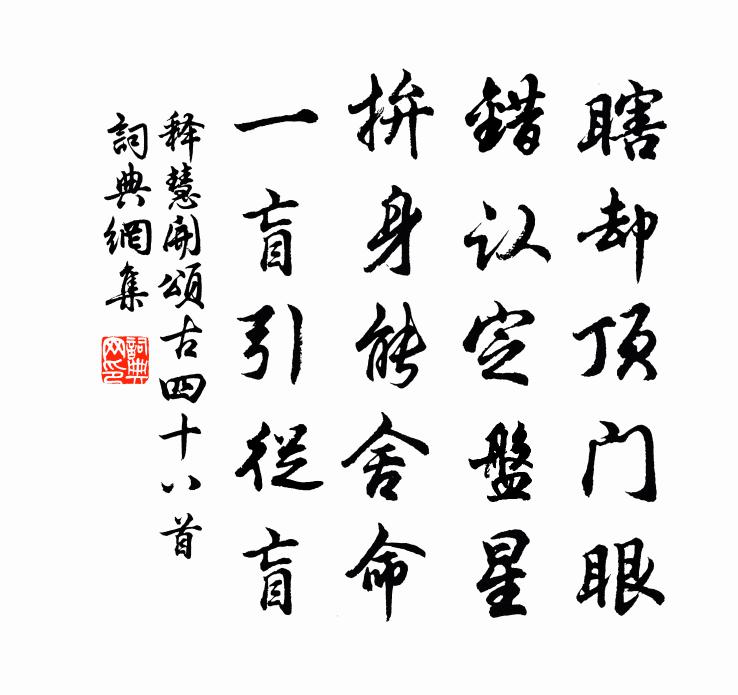 瞎却顶门眼
错认定盤星
拚身能舍命
一盲引從盲
释慧開頌古四十八首
詞典網集
詞典网印